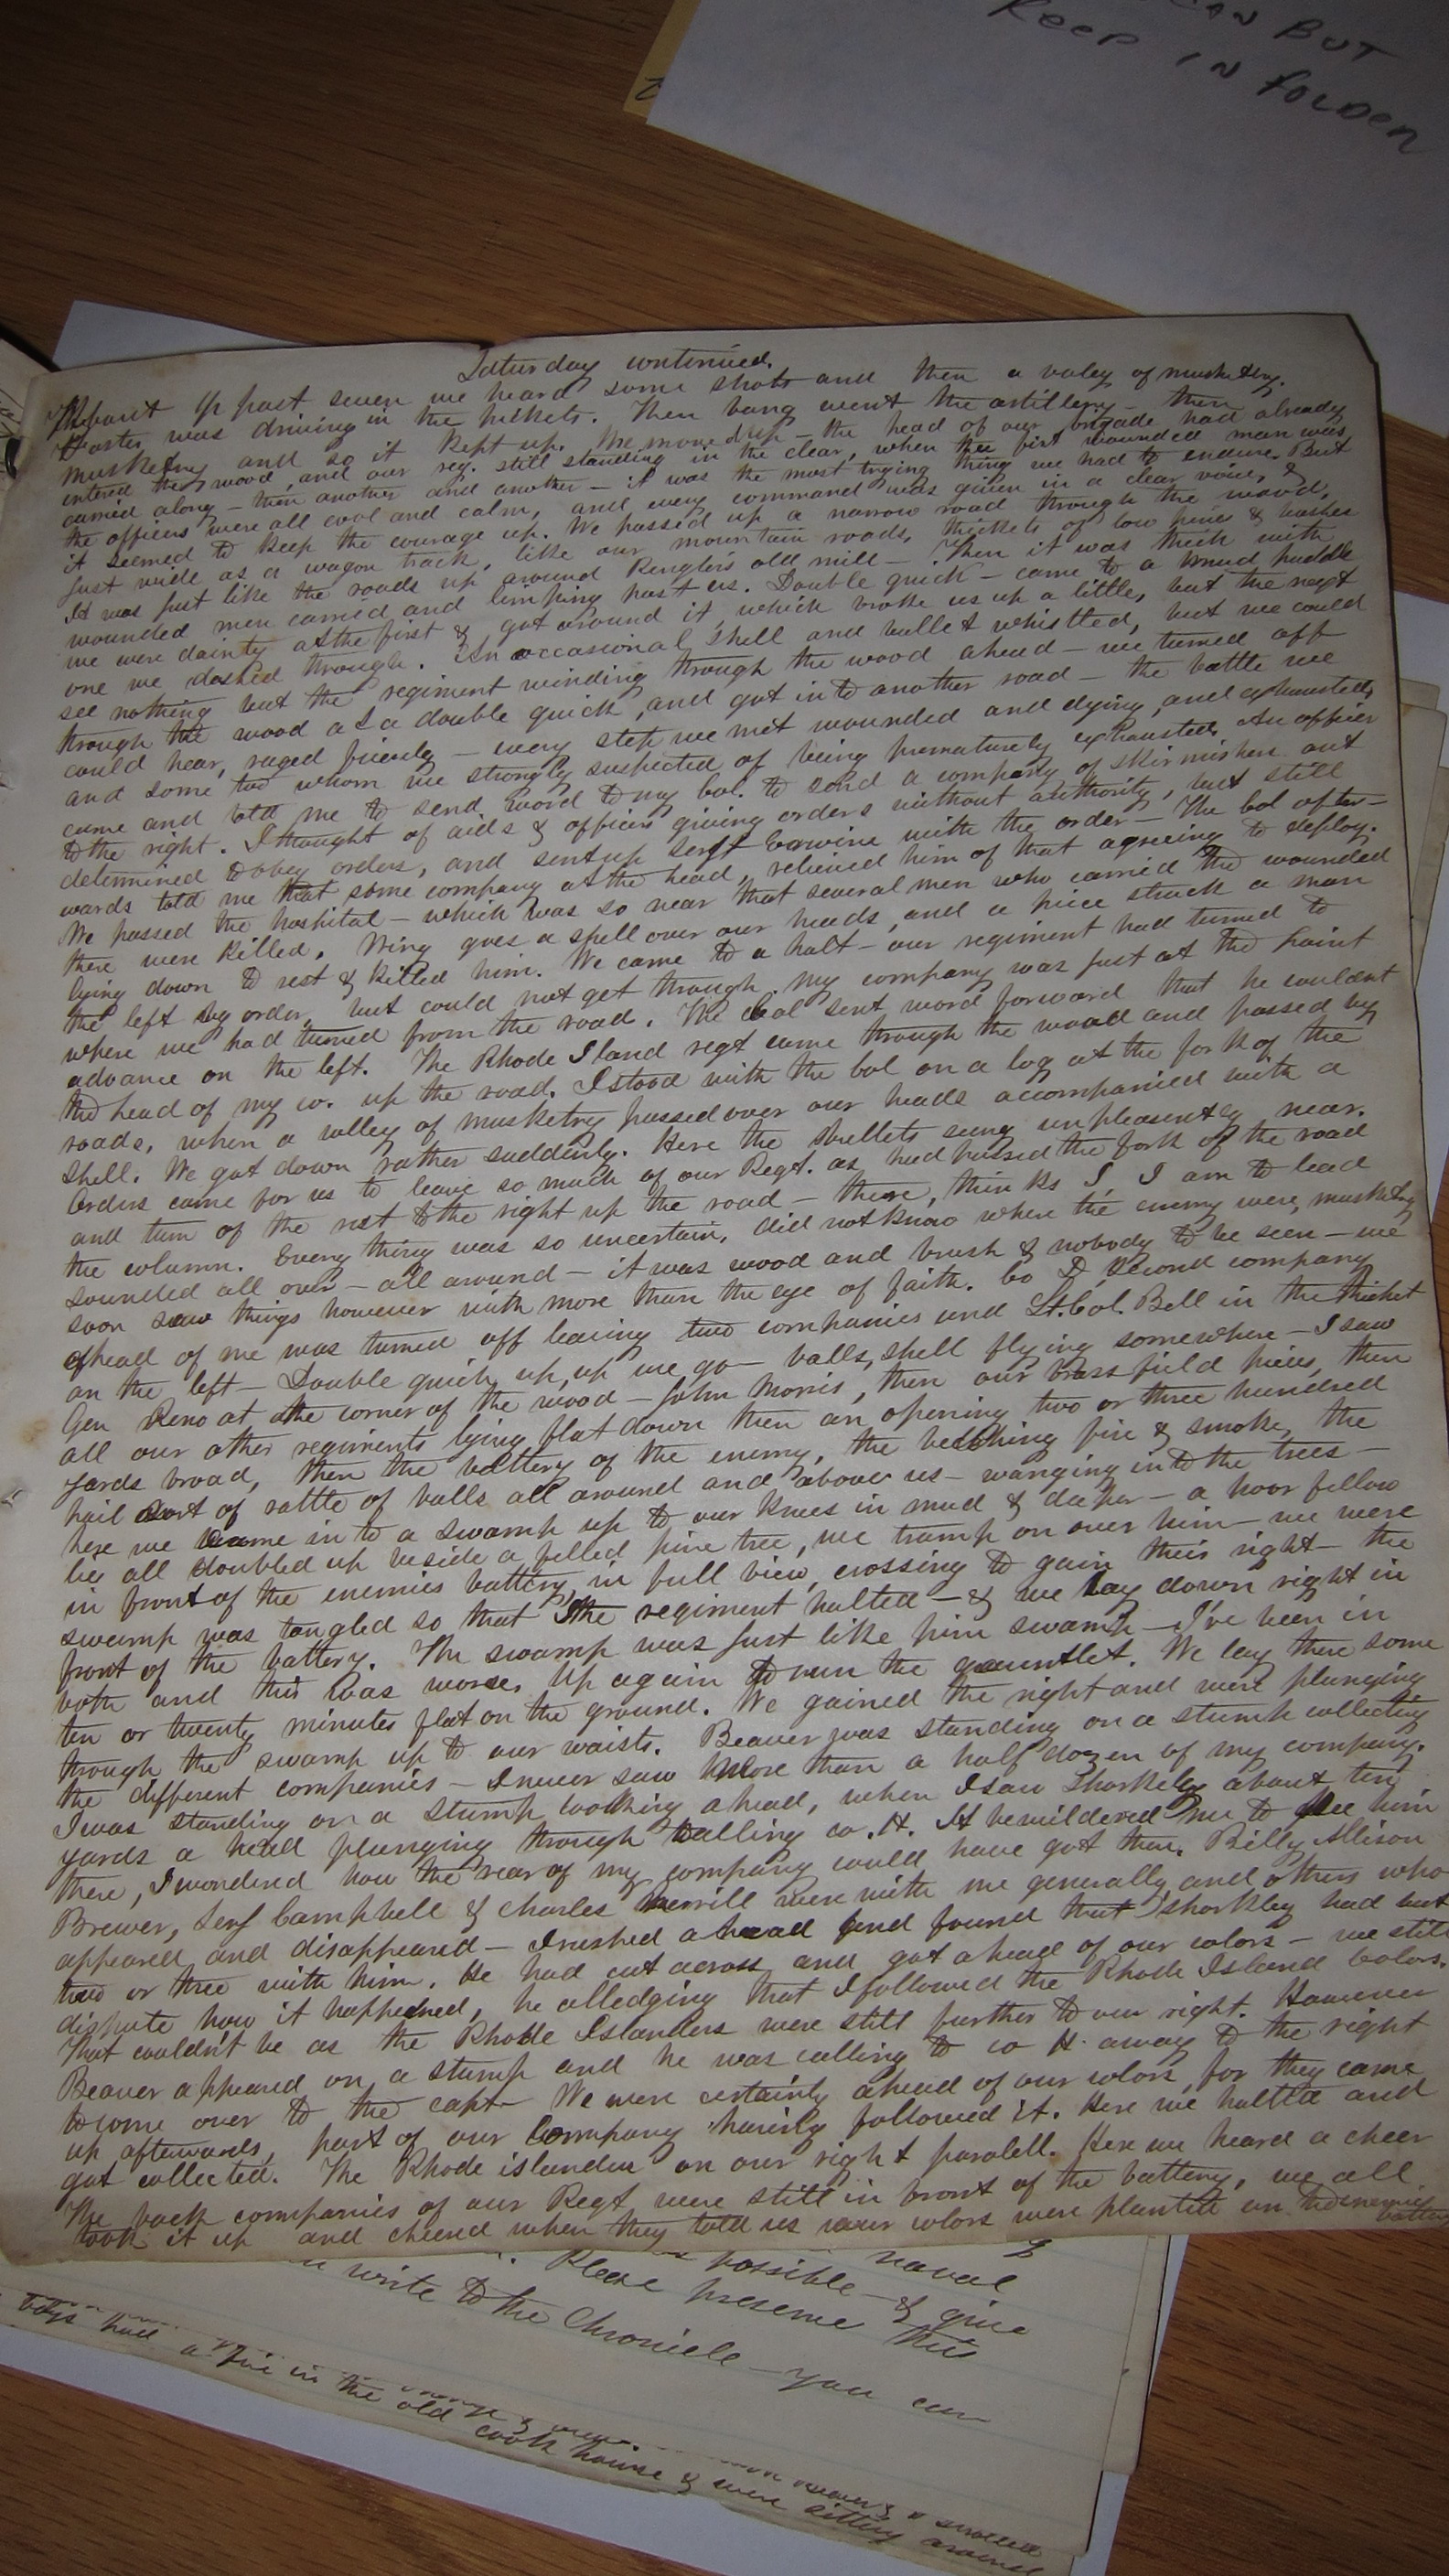 AN BUT
KEEP IN FOLDER
Saturday continued.
About ½ past seven we heard some shots and then a voley of musketry.
Foster was driving in the pickets. Then bang went the artillery – then
musketry and so it kept up. We moved up – the head of our brigade had already
entered the wood, and our reg. still standing in the clear, when the first wounded man was
carried along – then another and another – it was the most trying thing we had to endure. But
the officers were all cool and calm, and every command was given in a clear voice, &
it seemed to keep the courage up. We passed up a narrow road through the wood,
just wide as a wagon track, like our mountain roads, thickets of low pine & bushes
It was just like the roads up around Rengler's old mill – Then it was thick with
wounded men carried and limping past us. Double quick – came to a mud puddle
we were dainty at the first & got around it, which broke us up a little, but the next
one we dashed through. An occasional shell and bullet whistled, but we could
see nothing but the regiment winding through the wood ahead – we turned off
through the wood at a double quick, and got into another road – the battle we
could hear, raged fiercely – every step we met wounded and dying, and exhausted,
and some too whom we strongly suspected of being prematurely exhausted. An officer
came and told me to send word to my Col. to send a company of skirmishers out
to the right. I thought of aids & officers giving orders without authority, but still
determined to obey orders, and sent up Sergt Erwine with the order – The Col after-
wards told me that some company at the head, relieved him of that agreeing to deploy.
We passed the hospital – which was so near that several men who carried the wounded
there were killed. Wing goes a shell over our heads, and a piece struck a man
lying down to rest & killed him. We came to a halt – our regiment had turned to
the left by order, but could not get through. My company was just at the point
where we had turned from the road. The Col sent word forward that he couldent
advance on the left. The Rhode Island regt came through the wood and passed by
the head of my co. up the road. I stood with the Col on a log at the fork of the
roads, when a volley of musketry passed over our heads accompanied with a
shell. We got down rather suddenly. Here the bullets sung unpleasently near.
Orders came for us to leave so much of our Regt. as had passed the fork of the road
and turn of the rest to the right up the road – there, thinks I, I am to lead
the column. Every thing was so uncertain, did not know where the enemy were, musketry
sounded all over – all around – it was wood and brush & nobody to be seen – we
soon saw things however with more than the eye of faith. Co D, second company
ahead of me was turned off leaving two companies and Lt. Col. Bell in the thicket
on the left – Double quick up, up we go – balls, shell flying somewhere – I saw
Gen Reno at the corner of the wood – John Morris, then our brass field pieces, then
all our other regiments lying flat down then an opening two or three hundred
yards broad, then the battery of the enemy, the belching fire & smoke, the
hail sort of rattle of balls all around and above us – wanging into the trees –
here we came in to a swamp up to our knees in mud & deeper – a poor fellow
lies all doubled up beside a felled pine tree, we tramp on over him – we were
in front of the enemies battery, in full view, crossing to gain their right – the
swamp was tangled so that the regiment halted – & we lay down right in
front of the battery. The swamp was just like pine swamp – I've been in
both and this was worse. Up again to run the gauntlet. We lay there some
ten or twenty minutes flat on the ground. We gained the right and were plunging
through the swamp up to our waists. Beaver was standing on a stump collecting
the different companies – I never saw more than a half dozen of my company.
I was standing on a stump looking ahead, when I saw Sharkley about ten
yards a head plunging through calling co. H. It bewildered me to see him
there, I wondered how the rear of my company could have got then. Billy Allison
Brewer, Serg Campbell & Charles Merrill were with me generally and others who
appeared and disappeared – I rushed ahead and found that Sharkley had but
two or three with him. He had cut across and got ahead of our colors – we still
dispute how it happened, he alledging that I followed the Rhode Island Colors.
That couldn't be as the Rhode Islanders were still further to our right. However
Beaver appeared on a stump and he was calling to co H away to the right
to come over to the capt – We were certainly ahead of our colors for they came
up afterwards, part of our Company having followed it. Here we halted and
got collected. The Rhode islander on our right paralell. Here we heard a cheer
The back companies of our Regt were still in front of the battery, we all
took it up and cheered when they told us our colors were planted on the enemies
battery
naval
possible – & give
Please preserve this
write to the Chronicle – you can
boys had a fire in the old cook house & were sitting around